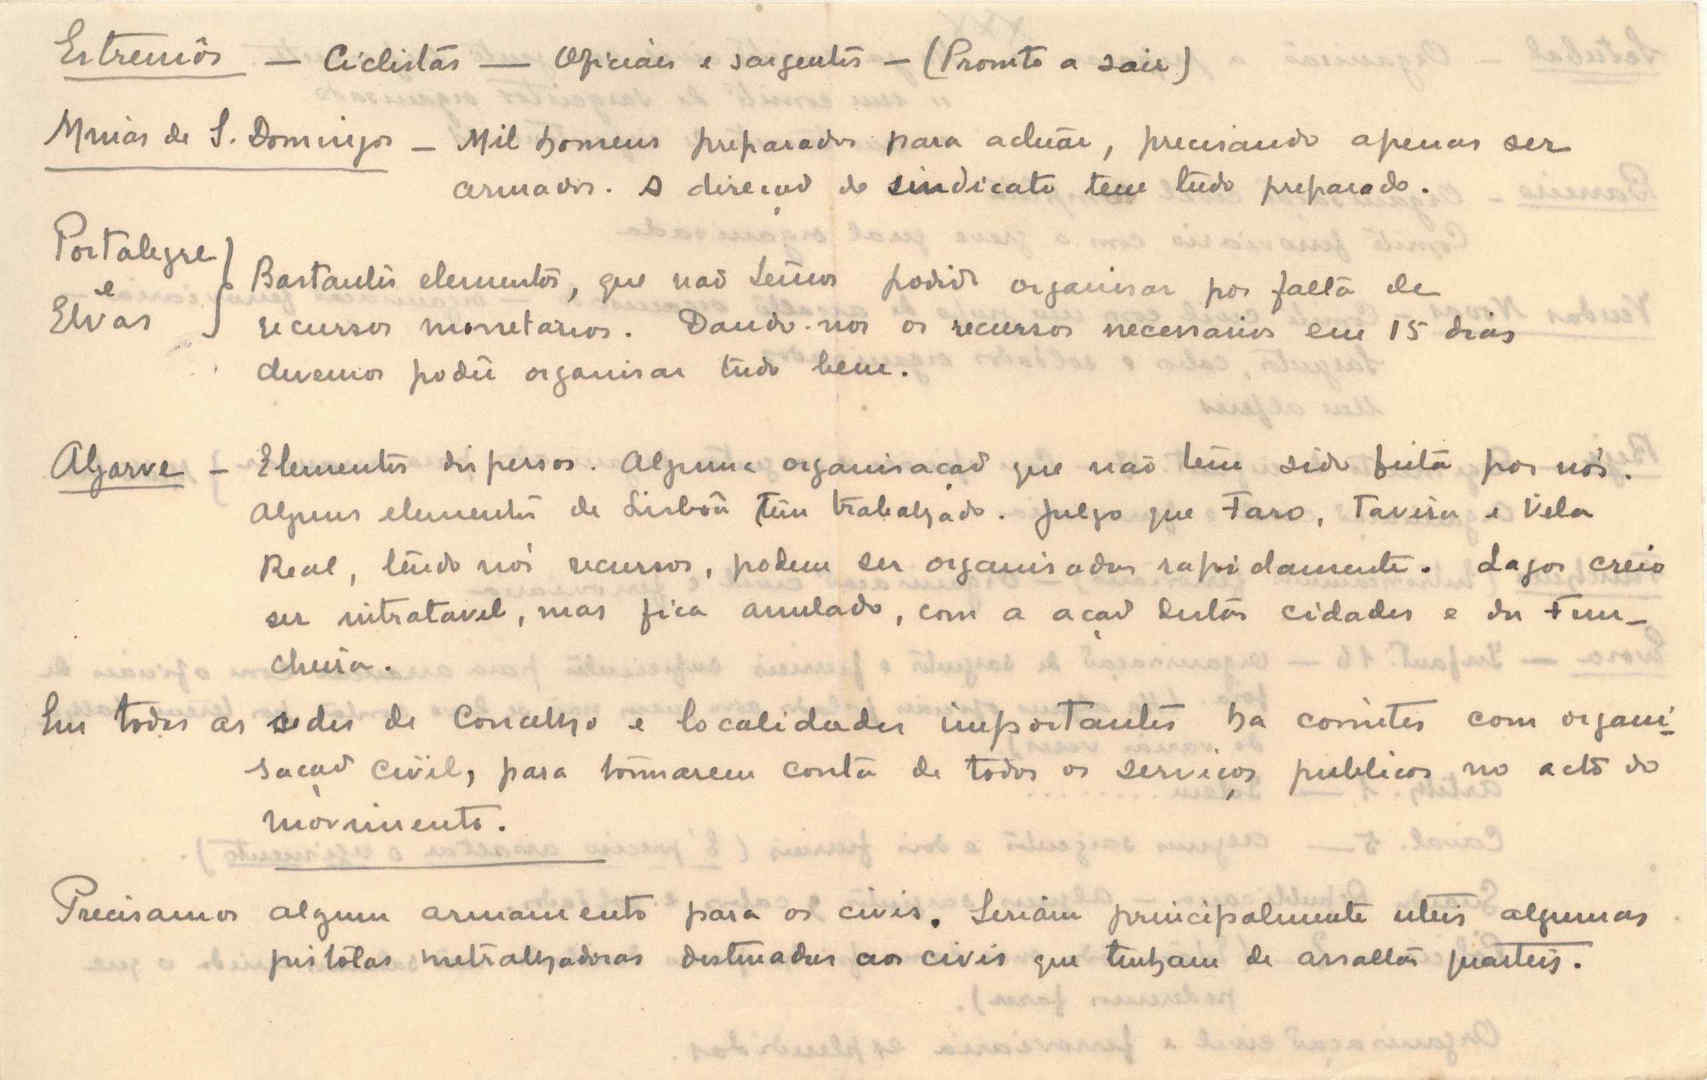 Estremôs — Ciclistas — Oficiais e sargentos — (Pronto a sair)
Minas de S. Domingos — Mil homens preparados para actuar, precisando apenas ser
armados. A direçaõ do sindicato tem tudo preparado.
Portalegre
e
Elvas
Bastantes elementos, que naõ temos podido organisar por falta de
recursos monetarios. Dando-nos os recursos necessarios em 15 dias
devemos poder organisar tudo bem.
Algarve — Elementos dispersos. Alguma organisaçaõ que naõ tem sido feita por nós.
Alguns elementos de Lisbôa têm trabalhado. Julgo que Faro, Tavira e Vila
Real, tendo nós recursos, podem ser organisados rapidamente. Lagos creio
ser intratavel, mas fica anulado, com a açaõ destas cidades e da Fun-
cheira.
Em todas as sedes de Concelho e localidades importantes ha comites com organi-
saçaõ civil, para tomarem conta de todos os serviços publicos no acto do
movimento.
Precisamos algum armamento para os civis. Seriam principalmente uteis algumas
pistolas metralhadoras destinadas aos civis que tenham de assaltar quarteis.